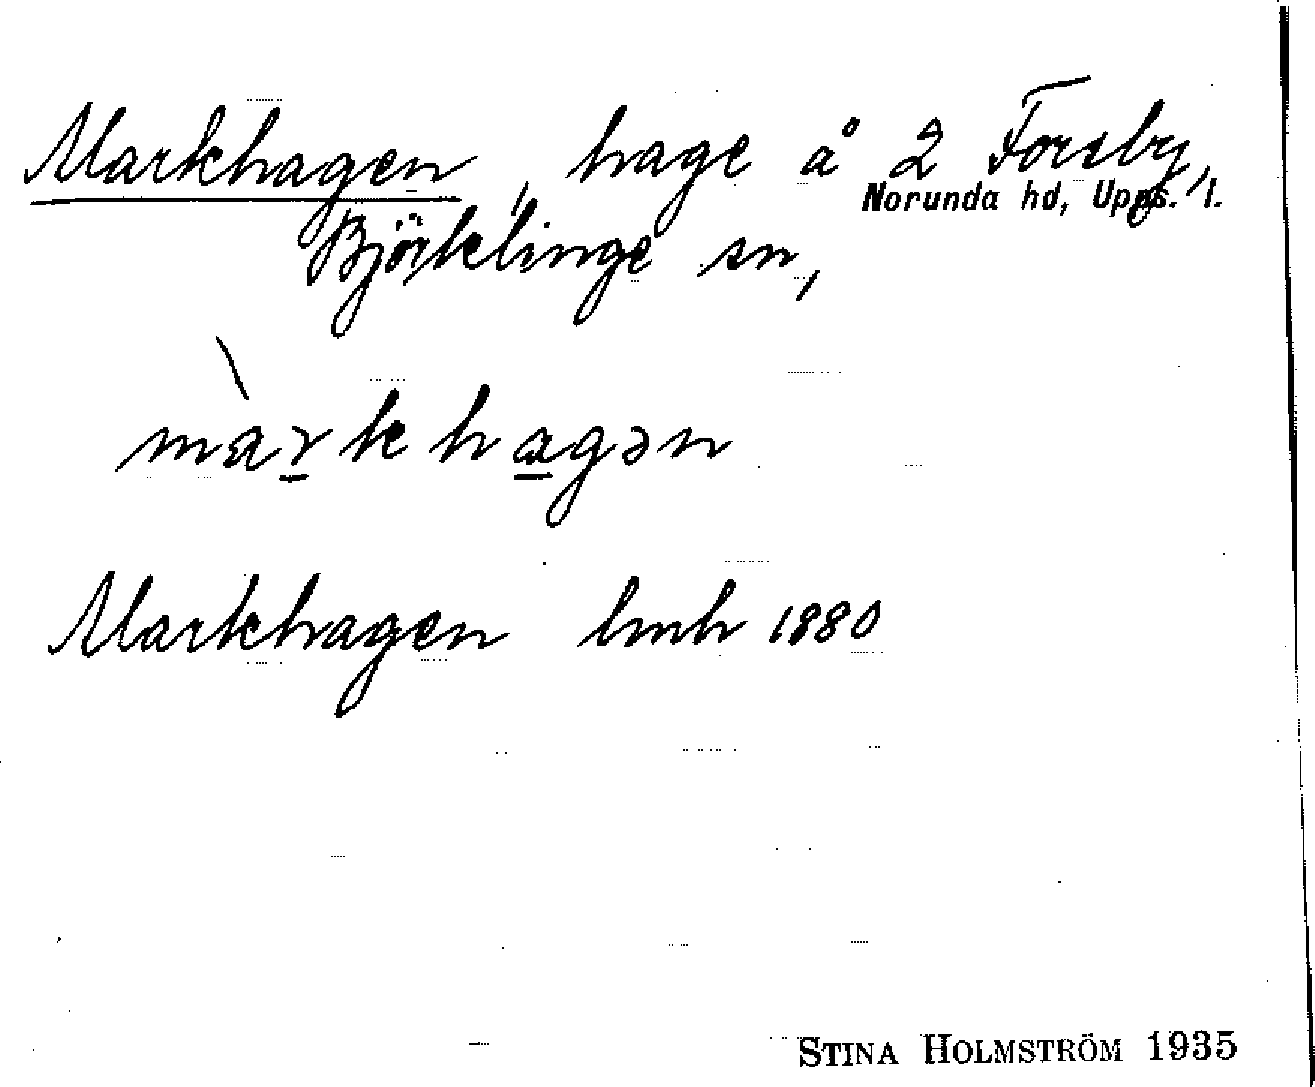 Markhagen, hage å 2 Forsby,
Norunda hd, Upps. l.
Björklinge sn,
màrkhagən
Markhagen hmh 1880
STINA HOLMSTRÖM 1935